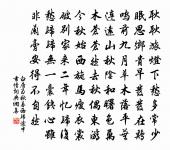 耿耿旅燈下愁多常少
眠思鄉貴早發發在雞
鳴前九月草木落平蕪
連遠山秋陰和曙色萬
木蒼蒼然去秋偶東遊
今秋始西旋馬瘦衣裳
破別家來二年憶歸復
愁歸歸無一囊錢心雖
非蘭膏安得不自然
白居易秋暮西歸途中
書情詞典國集